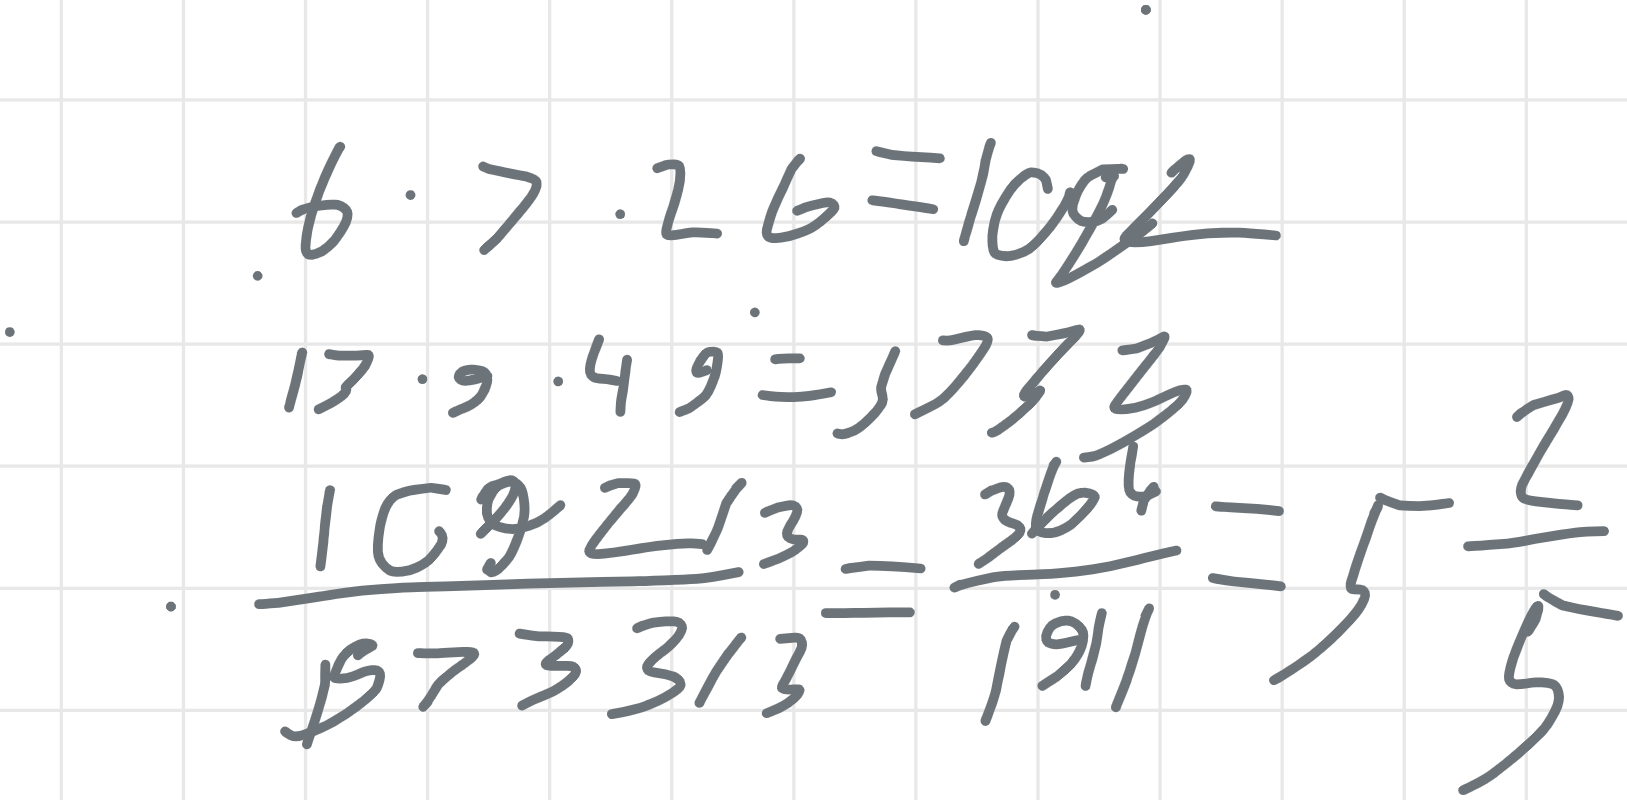 6 · 7 · 26 = 1092
13 · 9 · 49 = 5733
1092/3 / 5733/3 = 364 / 1911 = 5 2/5